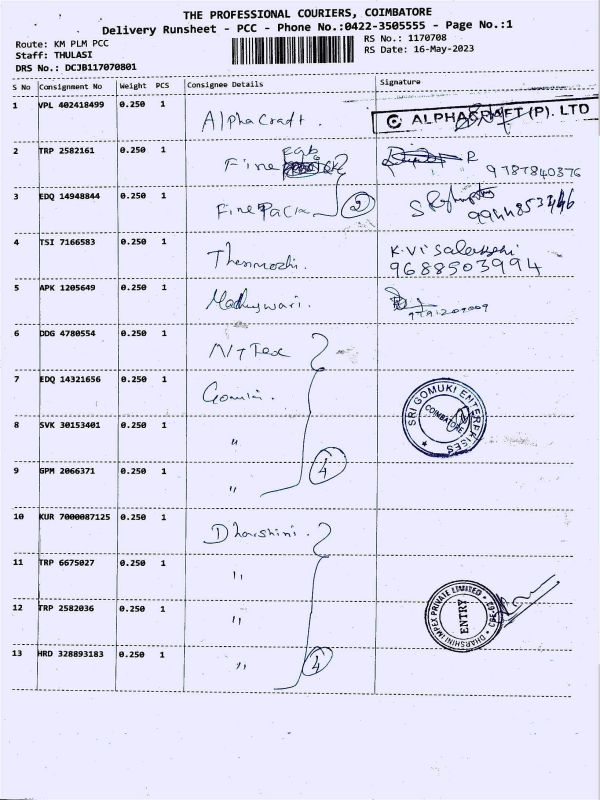 THE PROFESSIONAL COURIERS, COIMBATORE
Delivery Runsheet - PCC - Phone No.:0422-3505555 - Page No.:1
Route: KM PLM PCC
RS No.: 1170708
Staff: THULASI
RS Date: 16-May-2023
DRS No.: DCJB117070801
S No Consignment No Weight PCS Consignee Details Signature
1 VPL 402418499 0.250 1 AlphaCraft. ALPHACRAFT (P). LTD
2 TRP 2582161 0.250 1 Fine R 9787840376
3 EDQ 14948844 0.250 1 FinePack 2 9944853446
4 TSI 7166583 0.250 1 Thenmozhi. K.Visalakshi
9688503994
5 APK 1205649 0.250 1
6 DDG 4780554 0.250 1
7 EDQ 14321656 0.250 1 SRI GOMUKI ENTERPRISES COIMBATORE
8 SVK 30153401 0.250 1 "
9 GPM 2066371 0.250 1 " 4
10 KUR 7000087125 0.250 1 Dharshini.
11 TRP 6675027 0.250 1 "
12 TRP 2582036 0.250 1 " DHARSHINI IMPEX PRIVATE LIMITED ENTRY
13 HRD 328893183 0.250 1 " 4